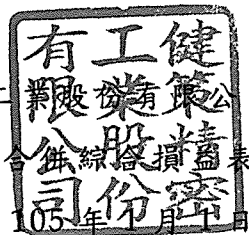 健策精密
工業股份
有限公司
業股份有限公
合併綜合損益表
105 年 1 月 1 日